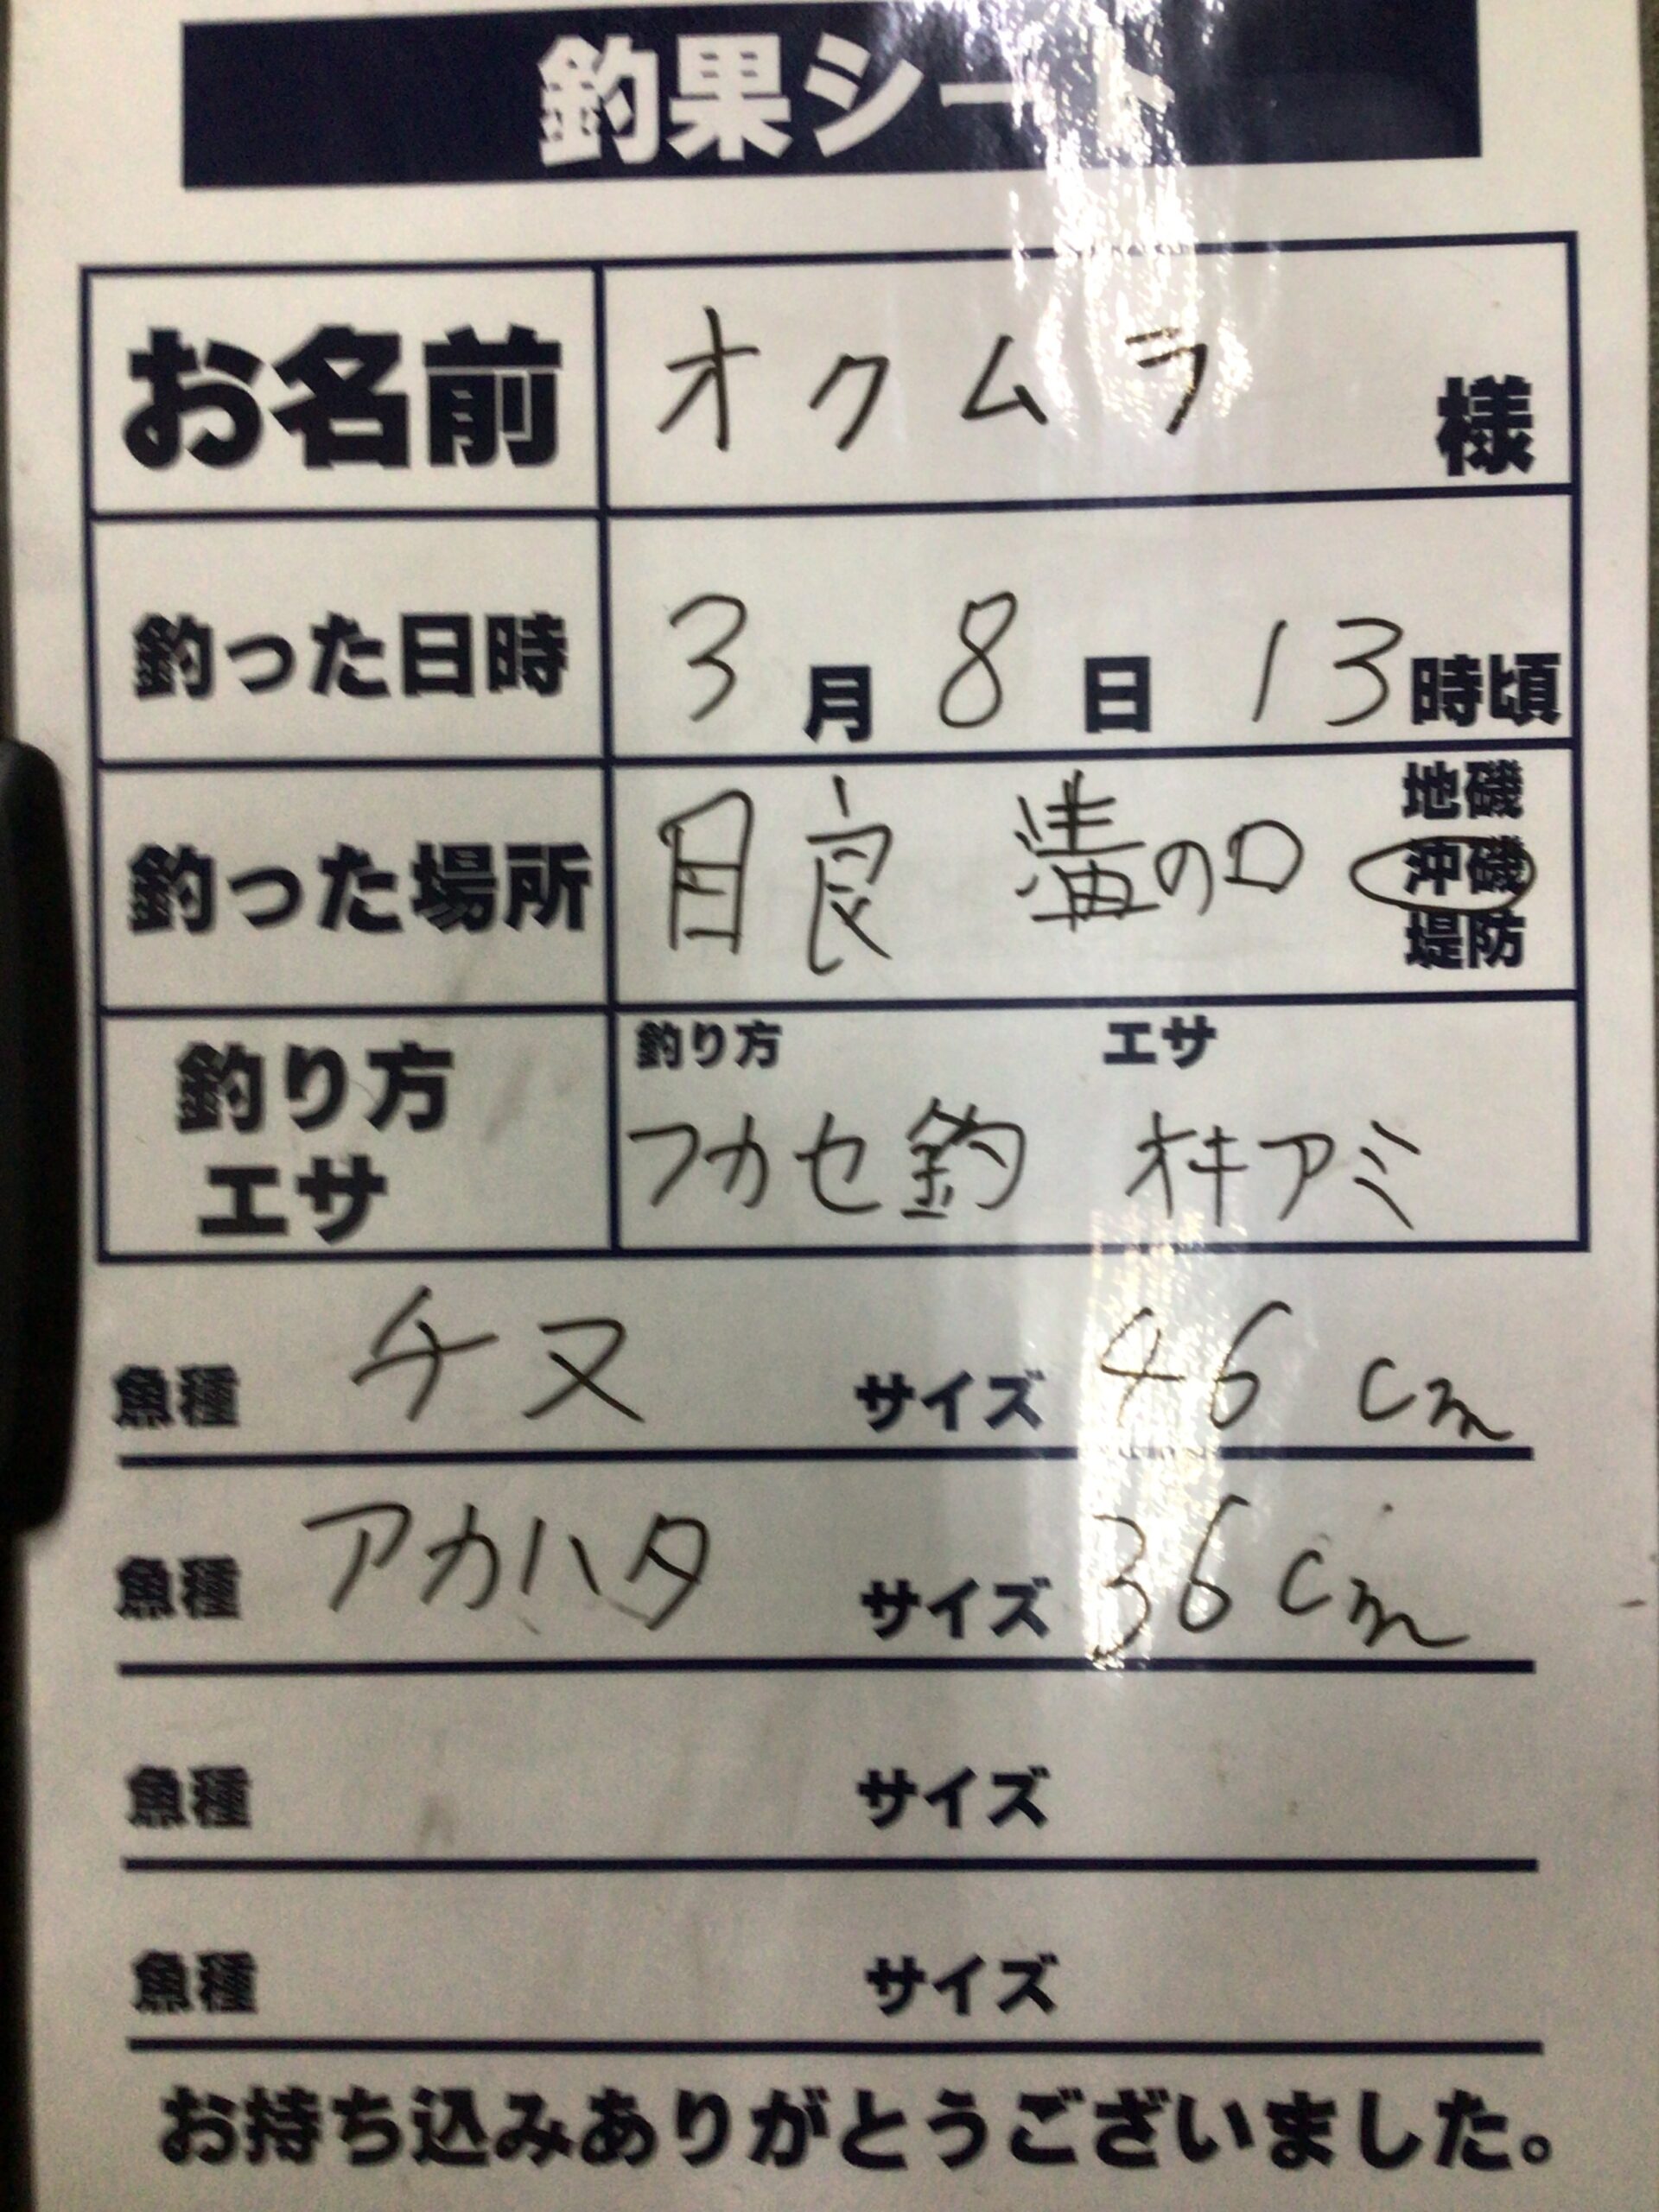 釣果シート
お名前 オクムラ 様
釣った日時 3月8日 13時頃
釣った場所 目良 溝の口 地磯
沖磯
堤防
釣り方 エサ
釣り方 エサ フカセ釣 オキアミ
魚種 チヌ サイズ 46cm
魚種 アカハタ サイズ 36cm
魚種 サイズ
魚種 サイズ
お持ち込みありがとうございました。